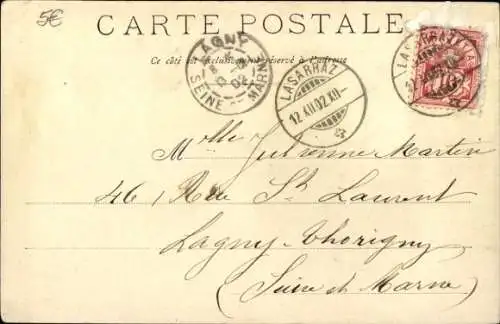 5€
CARTE POSTALE
Ce côté est exclusivement réservé à l'adresse
LAGNY
02
SEINE ET MARNE
LASARRAZ
12.XII.02.XII-
LASARRAZ
Mlle Julienne Martin
46, Rue St Laurent
Lagny-Thorigny
(Seine et Marne)